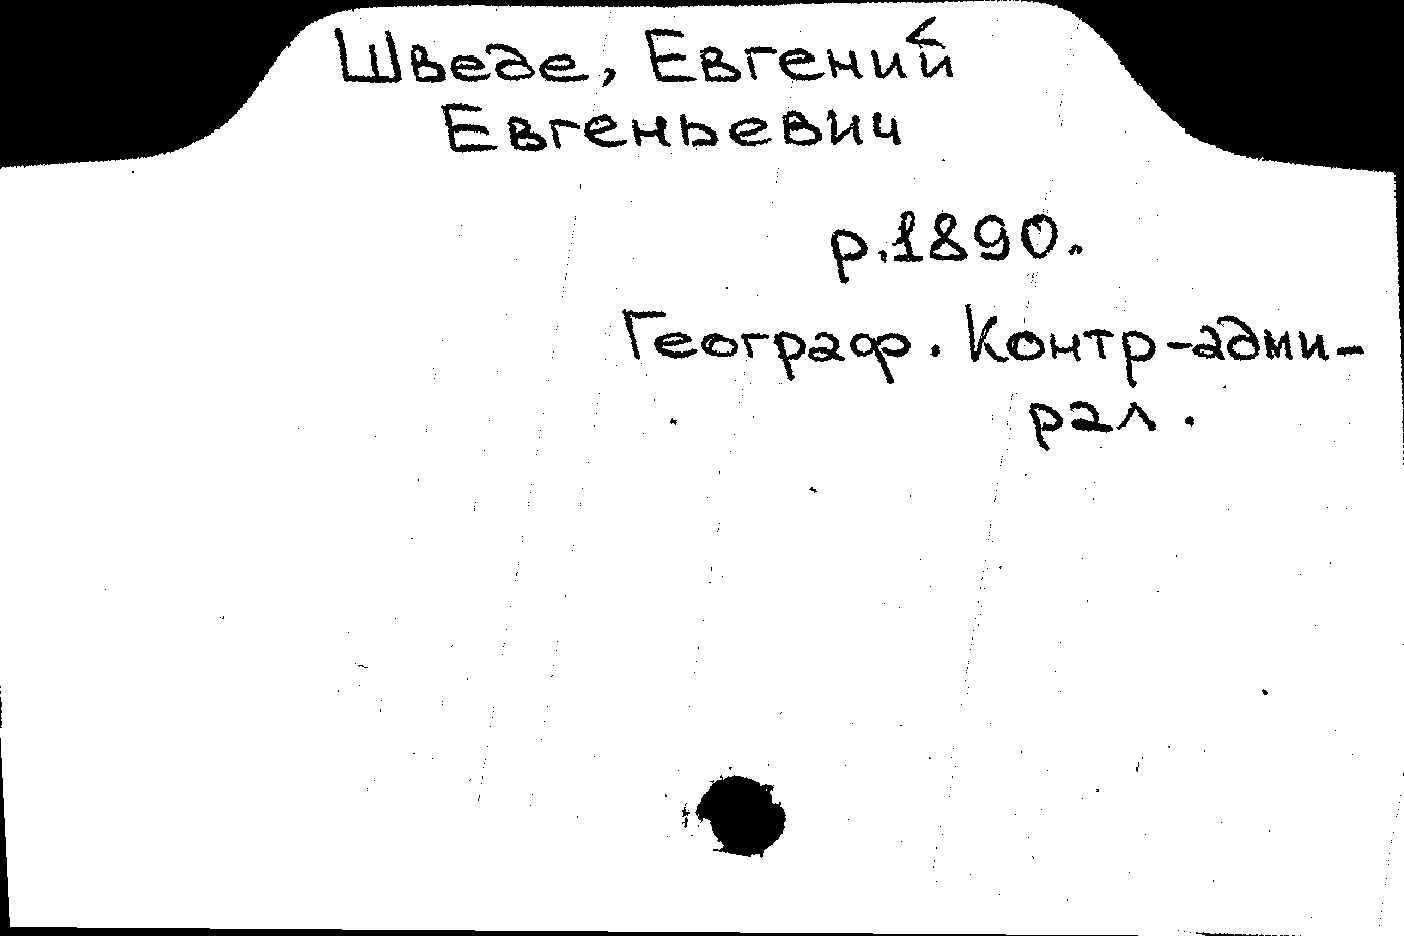 Шведе, Евгений
Евгеньевич
р.1890.
Географ. Контр-адми-
рал.